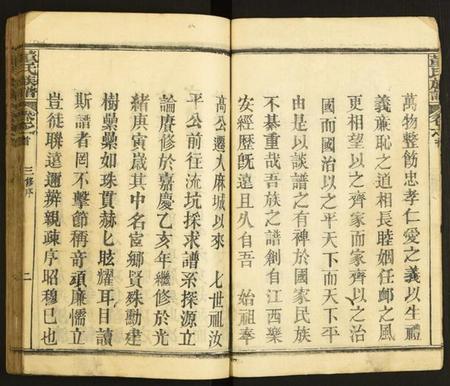 萬物整飭忠孝仁愛之義以生禮
義亷恥之道相長睦姻任卹之風
更相望以之齊家而家齊以之治
國而國治以之平天下而天下平
由是以談譜之有裨於國家民族
不綦重哉吾族之譜創自江西樂
安經歷旣遠且乆自吾 始祖奉
高公遷大麻城以來 七世祖汝
平公前往流坑採求譜系探源立
論賡修於嘉慶乙亥年繼修於光
緒庚寅歲其中名宦鄉賢殊勳建
樹纍纍如珠貫赫乚眩耀耳目讀
斯譜者罔不擊節稱竒頑亷懦立
豈徒聯遠邇辨親疎序昭穆已也
董氏族譜
卷之首
三修序
二
董氏族譜